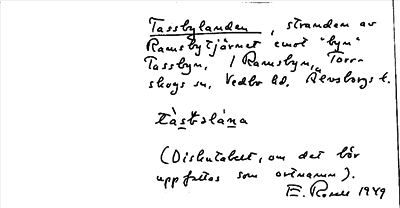 Tassbylanden, stranden av
Ramsbytjärnet emot "byn"
Tassbyn, i Ramsbyn, Torr-
skogs sn, Vedbo hd, Älvsborgs l.
tàsbəlána
(Diskutabelt, om det bör
uppfattas som ortnamn).
E. Rosell 1949